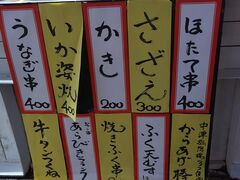 ほたて串
400
さざえ
300
かきし
200
いか姿焼
400
うなぎ串
400
からあげ棒
ふく天むす
焼きふく串
あらびき
牛タンつくね